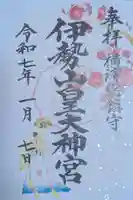 奉拝 横浜総鎮守
伊勢山皇大神宮
令和七年一月七日